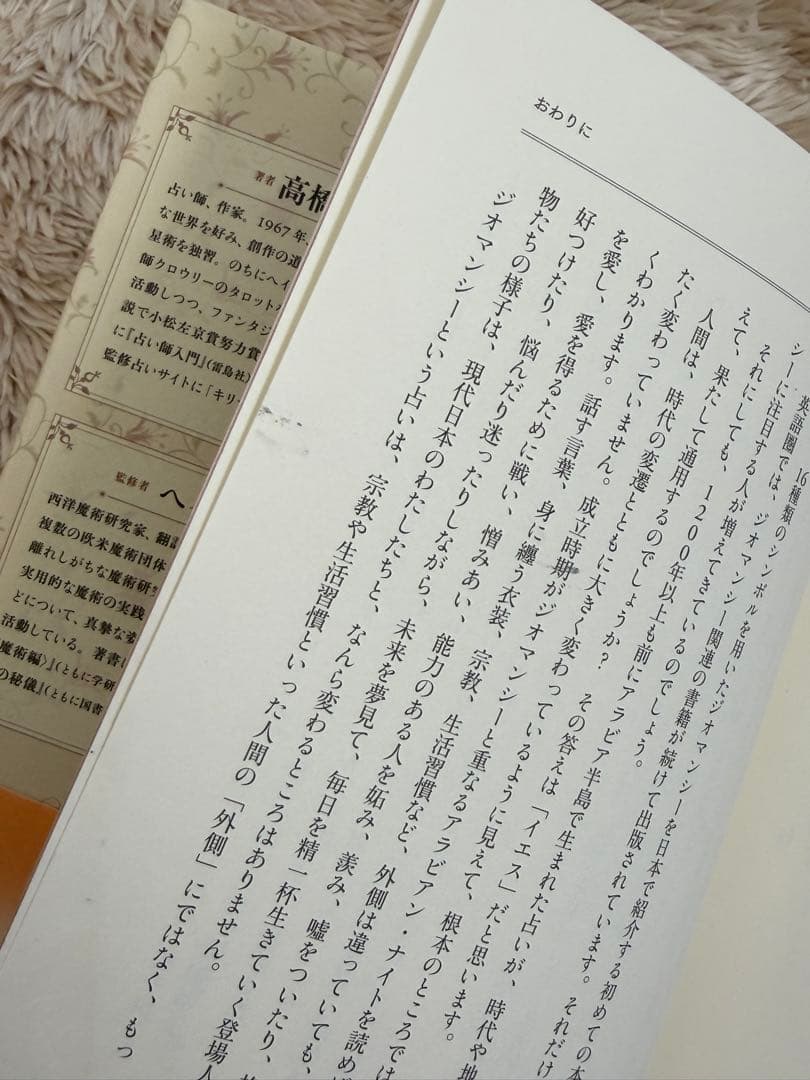 おわりに
16種類のシンボルを用いたジオマンシーを日本で紹介する初めての本
英語圏では、ジオマンシー関連の書籍が続けて出版されています。それだけ
シーに注目する人が増えてきているのでしょう。
それにしても、1200年以上も前にアラビア半島で生まれた占いが、時代や地
えて、果たして通用するのでしょうか? その答えは「イエス」だと思います。
人間は、時代の変遷とともに大きく変わっているように見えて、根本のところでは
たく変わっていません。成立時期がジオマンシーと重なるアラビアン・ナイトを読めば
くわかります。話す言葉、身に纏う衣装、宗教、生活習慣など、外側は違っていても、
を愛し、愛を得るために戦い、憎みあい、能力のある人を妬み、羨み、嘘をついたり、
好つけたり、悩んだり迷ったりしながら、未来を夢見て、毎日を精一杯生きていく登場人
物たちの様子は、現代日本のわたしたちと、なんら変わるところはありません。
ジオマンシーという占いは、宗教や生活習慣といった人間の「外側」にではなく、もっ
著者 高橋
占い師、作家。1967年、
な世界を好み、創作の道
星術を独習。のちにヘイ
師クロウリーのタロット
活動しつつ、ファンタジ
説で小松左京賞努力賞
に『占い師入門』(雷鳥社)
監修占いサイトに「キリ
監修者 へ
西洋魔術研究家、翻訳
複数の欧米魔術団体
離れしがちな魔術研
実用的な魔術の実践
どについて、真摯な姿
活動している。著書に
魔術編〉』(ともに学研
の秘儀』(ともに国書